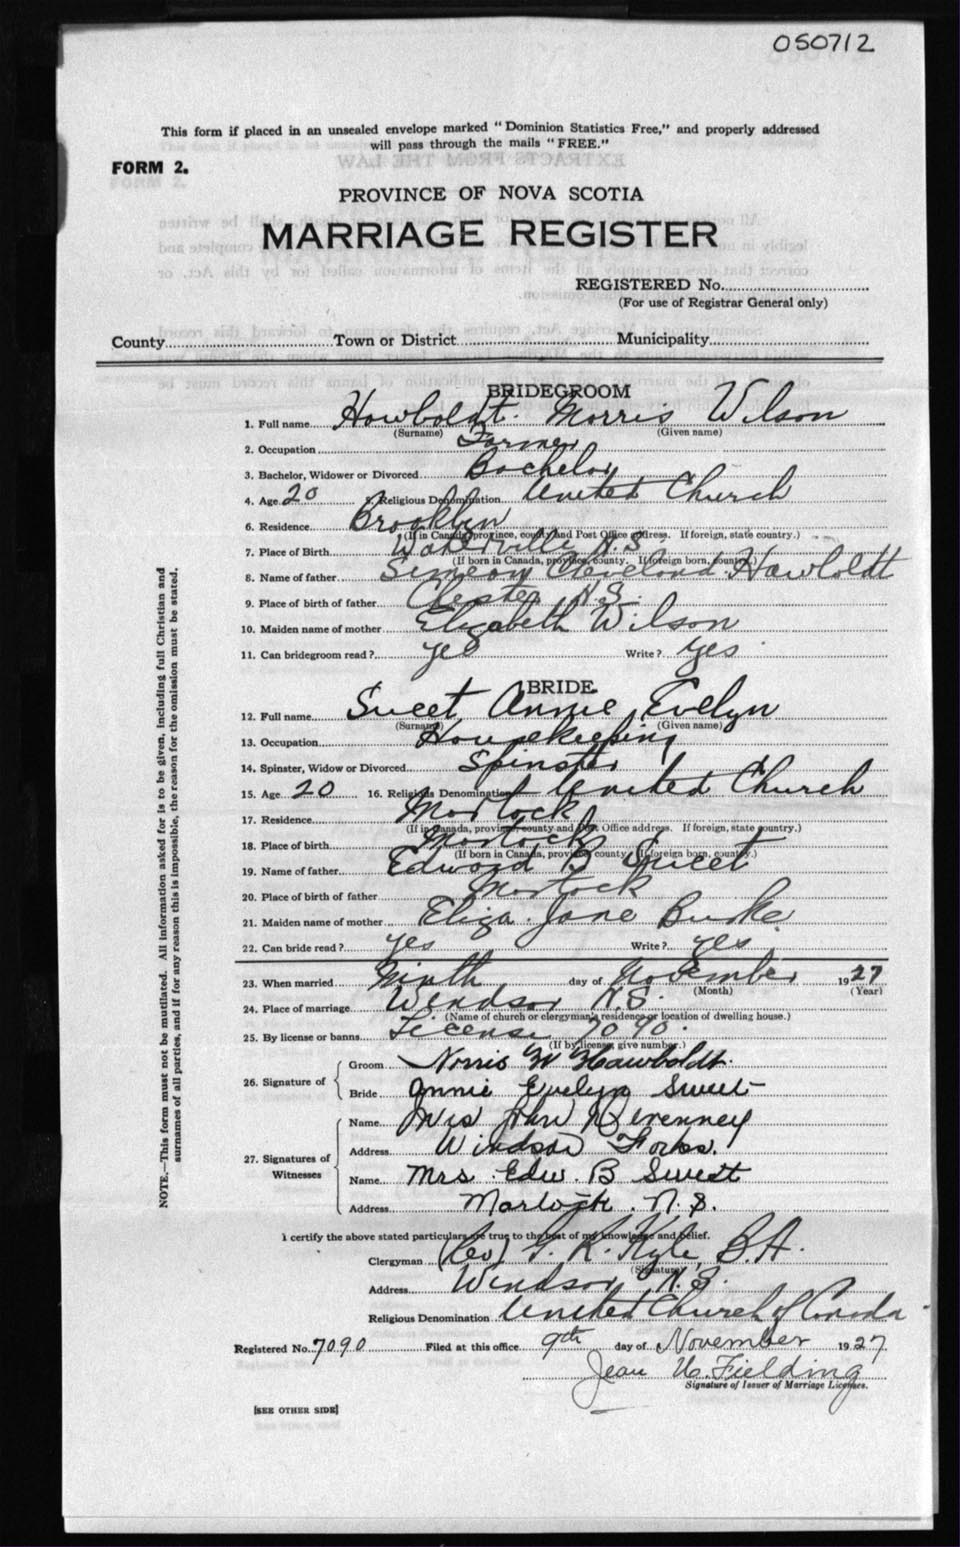 050712
This form if placed in an unsealed envelope marked "Dominion Statistics Free," and properly addressed
will pass through the mails "FREE."
FORM 2.
PROVINCE OF NOVA SCOTIA
MARRIAGE REGISTER
REGISTERED No.
(For use of Registrar General only)
County Town or District Municipality
BRIDEGROOM
1. Full name Howboldt. Morris Wilson
(Surname) (Given name)
2. Occupation Farmer
3. Bachelor, Widower or Divorced Bachelor
4. Age 20 5. Religious Denomination United Church
6. Residence Brooklyn
(If in Canada, province, county and Post Office address. If foreign, state country.)
7. Place of Birth Waterville N.S.
(If born in Canada, province, county. If foreign born, country.)
8. Name of father Simeon Cleveland Hawboldt
9. Place of birth of father Chester N.S.
10. Maiden name of mother Elizabeth Wilson
11. Can bridegroom read? yes Write? yes
BRIDE
12. Full name Sweet Annie Evelyn
(Surname) (Given name)
13. Occupation Housekeeping
14. Spinster, Widow or Divorced Spinster
15. Age 20 16. Religious Denomination United Church
17. Residence Mortock
(If in Canada, province, county and Post Office address. If foreign, state country.)
18. Place of birth Mortock
(If born in Canada, province county. If foreign born, country.)
19. Name of father Edward B Sweet
20. Place of birth of father Mortock
21. Maiden name of mother Eliza Jane Burke
22. Can bride read? yes Write? yes
23. When married Ninth day of November 1927
(Month) (Year)
24. Place of marriage Windsor N.S.
(Name of church or clergyman's residence or location of dwelling house.)
25. By license or banns License 7090.
(If by license, give number.)
26. Signature of Groom Norris W Hawboldt.
Bride Annie Evelyn Sweet
27. Signatures of Witnesses Name Mrs John
Address Windsor Forks.
Name Mrs. Edw. B Sweet
Address Martock. N.S.
I certify the above stated particulars are true to the best of my knowledge and belief.
Clergyman (Rev) G. R. Kyle, B.A.
(Signature)
Address Windsor N.S.
Religious Denomination United Church of Canada
Registered No. 7090 Filed at this office 9th day of November 1927
Jean W. Fielding
Signature of Issuer of Marriage Licenses.
[SEE OTHER SIDE]
NOTE.—This form must not be mutilated. All information asked for is to be given, including full Christian and
surnames of all parties, and if for any reason this is impossible, the reason for the omission must be stated.